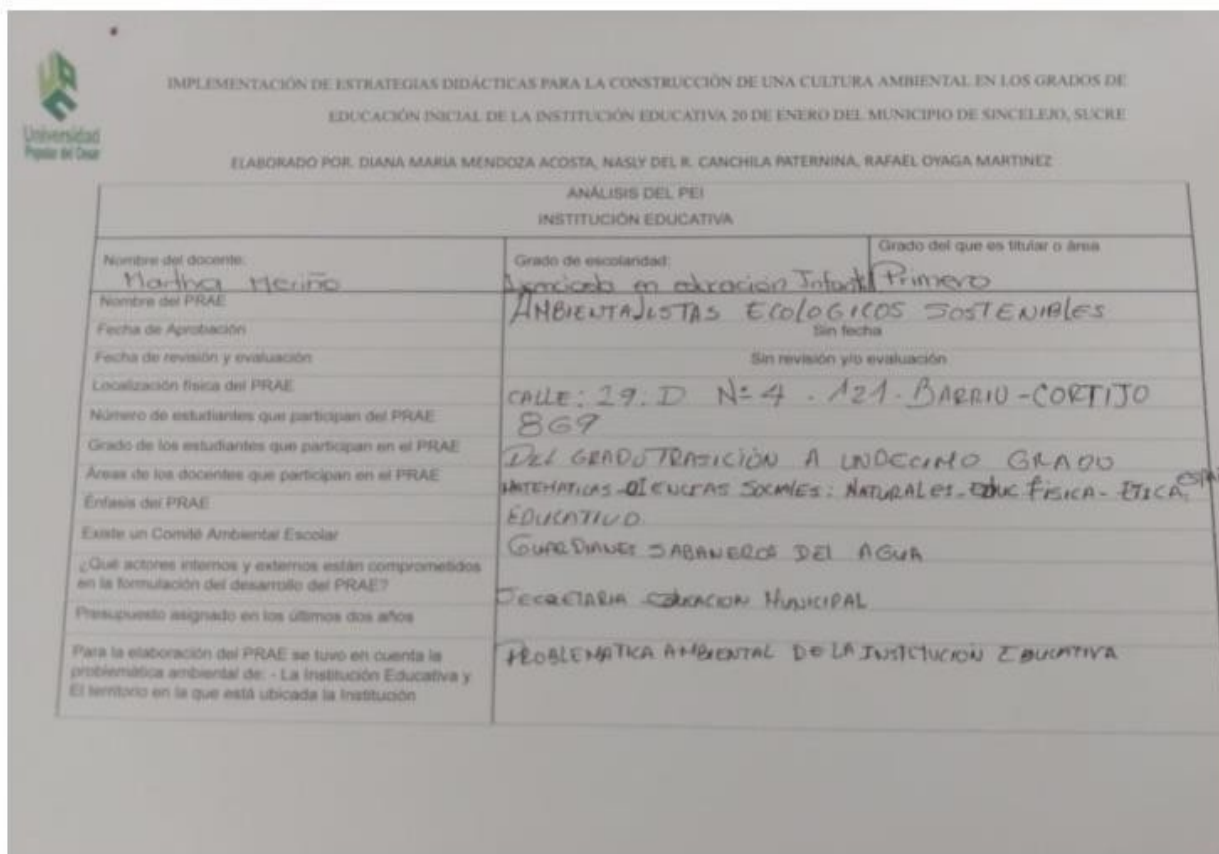 Universidad
Popular del Cesar
IMPLEMENTACIÓN DE ESTRATEGIAS DIDÁCTICAS PARA LA CONSTRUCCIÓN DE UNA CULTURA AMBIENTAL EN LOS GRADOS DE
EDUCACIÓN INICIAL DE LA INSTITUCIÓN EDUCATIVA 20 DE ENERO DEL MUNICIPIO DE SINCELEJO, SUCRE
ELABORADO POR. DIANA MARIA MENDOZA ACOSTA, NASLY DEL R. CANCHILA PATERNINA, RAFAEL OYAGA MARTINEZ
ANÁLISIS DEL PEI
INSTITUCIÓN EDUCATIVA
Nombre del docente:
Martha Meriño
Grado de escolaridad:
en educación Infantil
Grado del que es titular o área
Primero
Nombre del PRAE
AMBIENTALISTAS ECOLOGICOS SOSTENIBLES
Fecha de Aprobación
Sin fecha
Fecha de revisión y evaluación
Sin revisión y/o evaluación
Localización física del PRAE
CALLE: 29. D Nº 4 - 121 - BARRIO - CORTIJO
Número de estudiantes que participan del PRAE
869
Grado de los estudiantes que participan en el PRAE
DEL GRADO TRASICIÓN A UNDECIMO GRADO
Áreas de los docentes que participan en el PRAE
MATEMATICAS - CIENCIAS SOCIALES: NATURALES - EDUC FISICA - ETICA,
Énfasis del PRAE
EDUCATIVO
Existe un Comité Ambiental Escolar
GUARDIANES SABANEROS DEL AGUA
¿Qué actores internos y externos están comprometidos
en la formulación del desarrollo del PRAE?
SECRETARIA EDUCACION MUNICIPAL
Presupuesto asignado en los últimos dos años
Para la elaboración del PRAE se tuvo en cuenta la
problemática ambiental de: - La Institución Educativa y
El territorio en la que está ubicada la Institución
PROBLEMATICA AMBIENTAL DE LA INSTITUCION EDUCATIVA